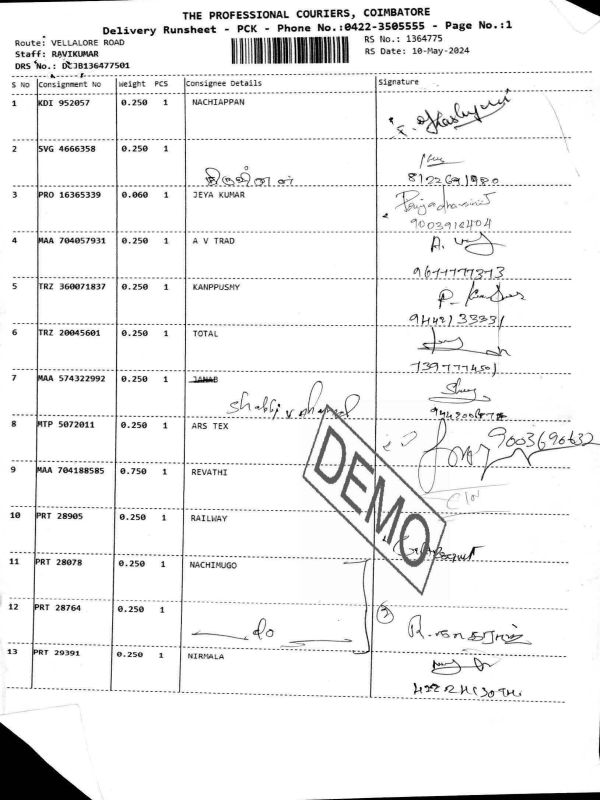 THE PROFESSIONAL COURIERS, COIMBATORE
Delivery Runsheet - PCK - Phone No.:0422-3505555 - Page No.:1
Route: VELLALORE ROAD
RS No.: 1364775
Staff: RAVIKUMAR
RS Date: 10-May-2024
DRS No.: DCJB136477501
S No Consignment No Weight PCS Consignee Details Signature
1 KDI 952057 0.250 1 NACHIAPPAN
2 SVG 4666358 0.250 1
3 PRO 16365339 0.060 1 JEYA KUMAR
9003914404
4 MAA 704057931 0.250 1 A V TRAD
9677777373
5 TRZ 360071837 0.250 1 KANPPUSMY
9442133331
6 TRZ 20045601 0.250 1 TOTAL
7 MAA 574322992 0.250 1 JANAB
8 MTP 5072011 0.250 1 ARS TEX
9003690632
9 MAA 704188585 0.750 1 REVATHI
10 PRT 28905 0.250 1 RAILWAY
11 PRT 28078 0.250 1 NACHIMUGO
12 PRT 28764 0.250 1
do
②
13 PRT 29391 0.250 1 NIRMALA
DEMO